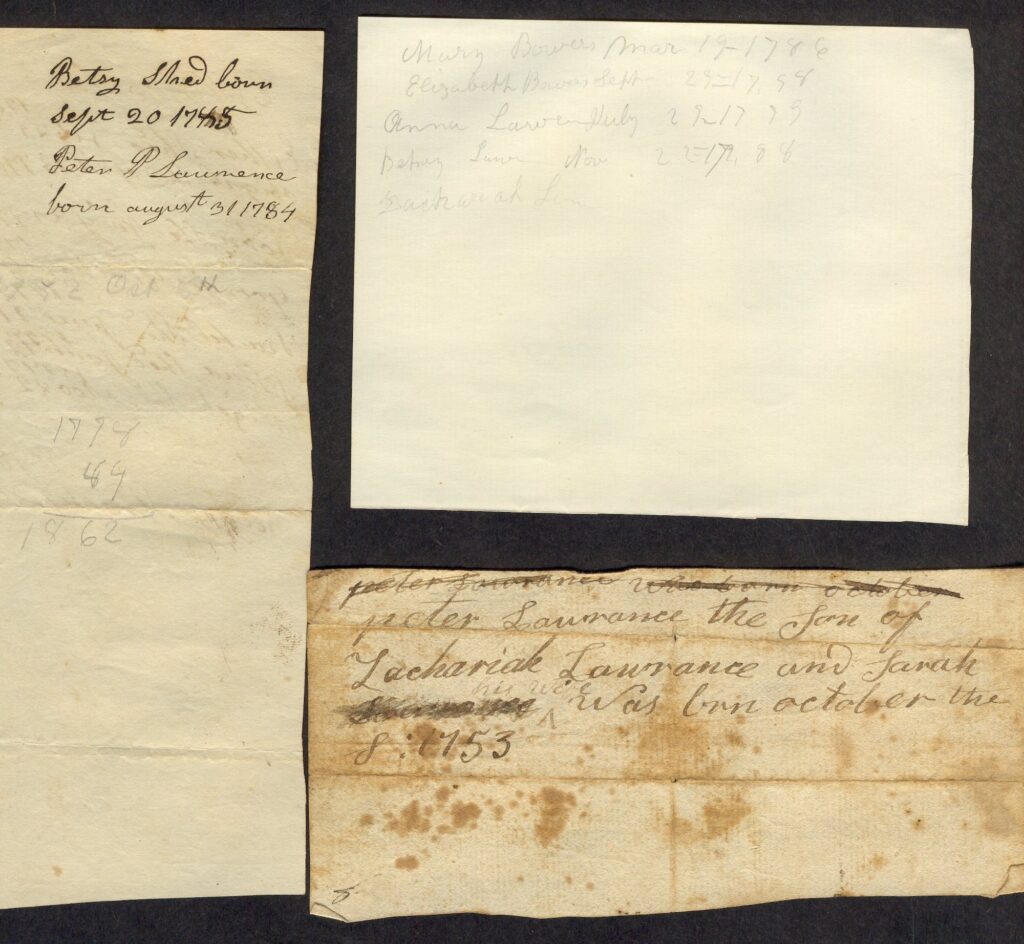 Betsy Shed born
Sept 20 1785
Peter P Lawrence
born august 31 1784
Oct 8th
1798
64
1862
Mary Bowers Mar 19-1786
Elizabeth Bowers Sept 29-17,98
Anna Lawren July 29-1779
Betsey Lawr Nov 22-17,88
Zachariah
peter Lawrance was born october
peter Lawrance the Son of
Zachariah Lawrance and Sarah
his wife
Was brn october the
8:1753
8